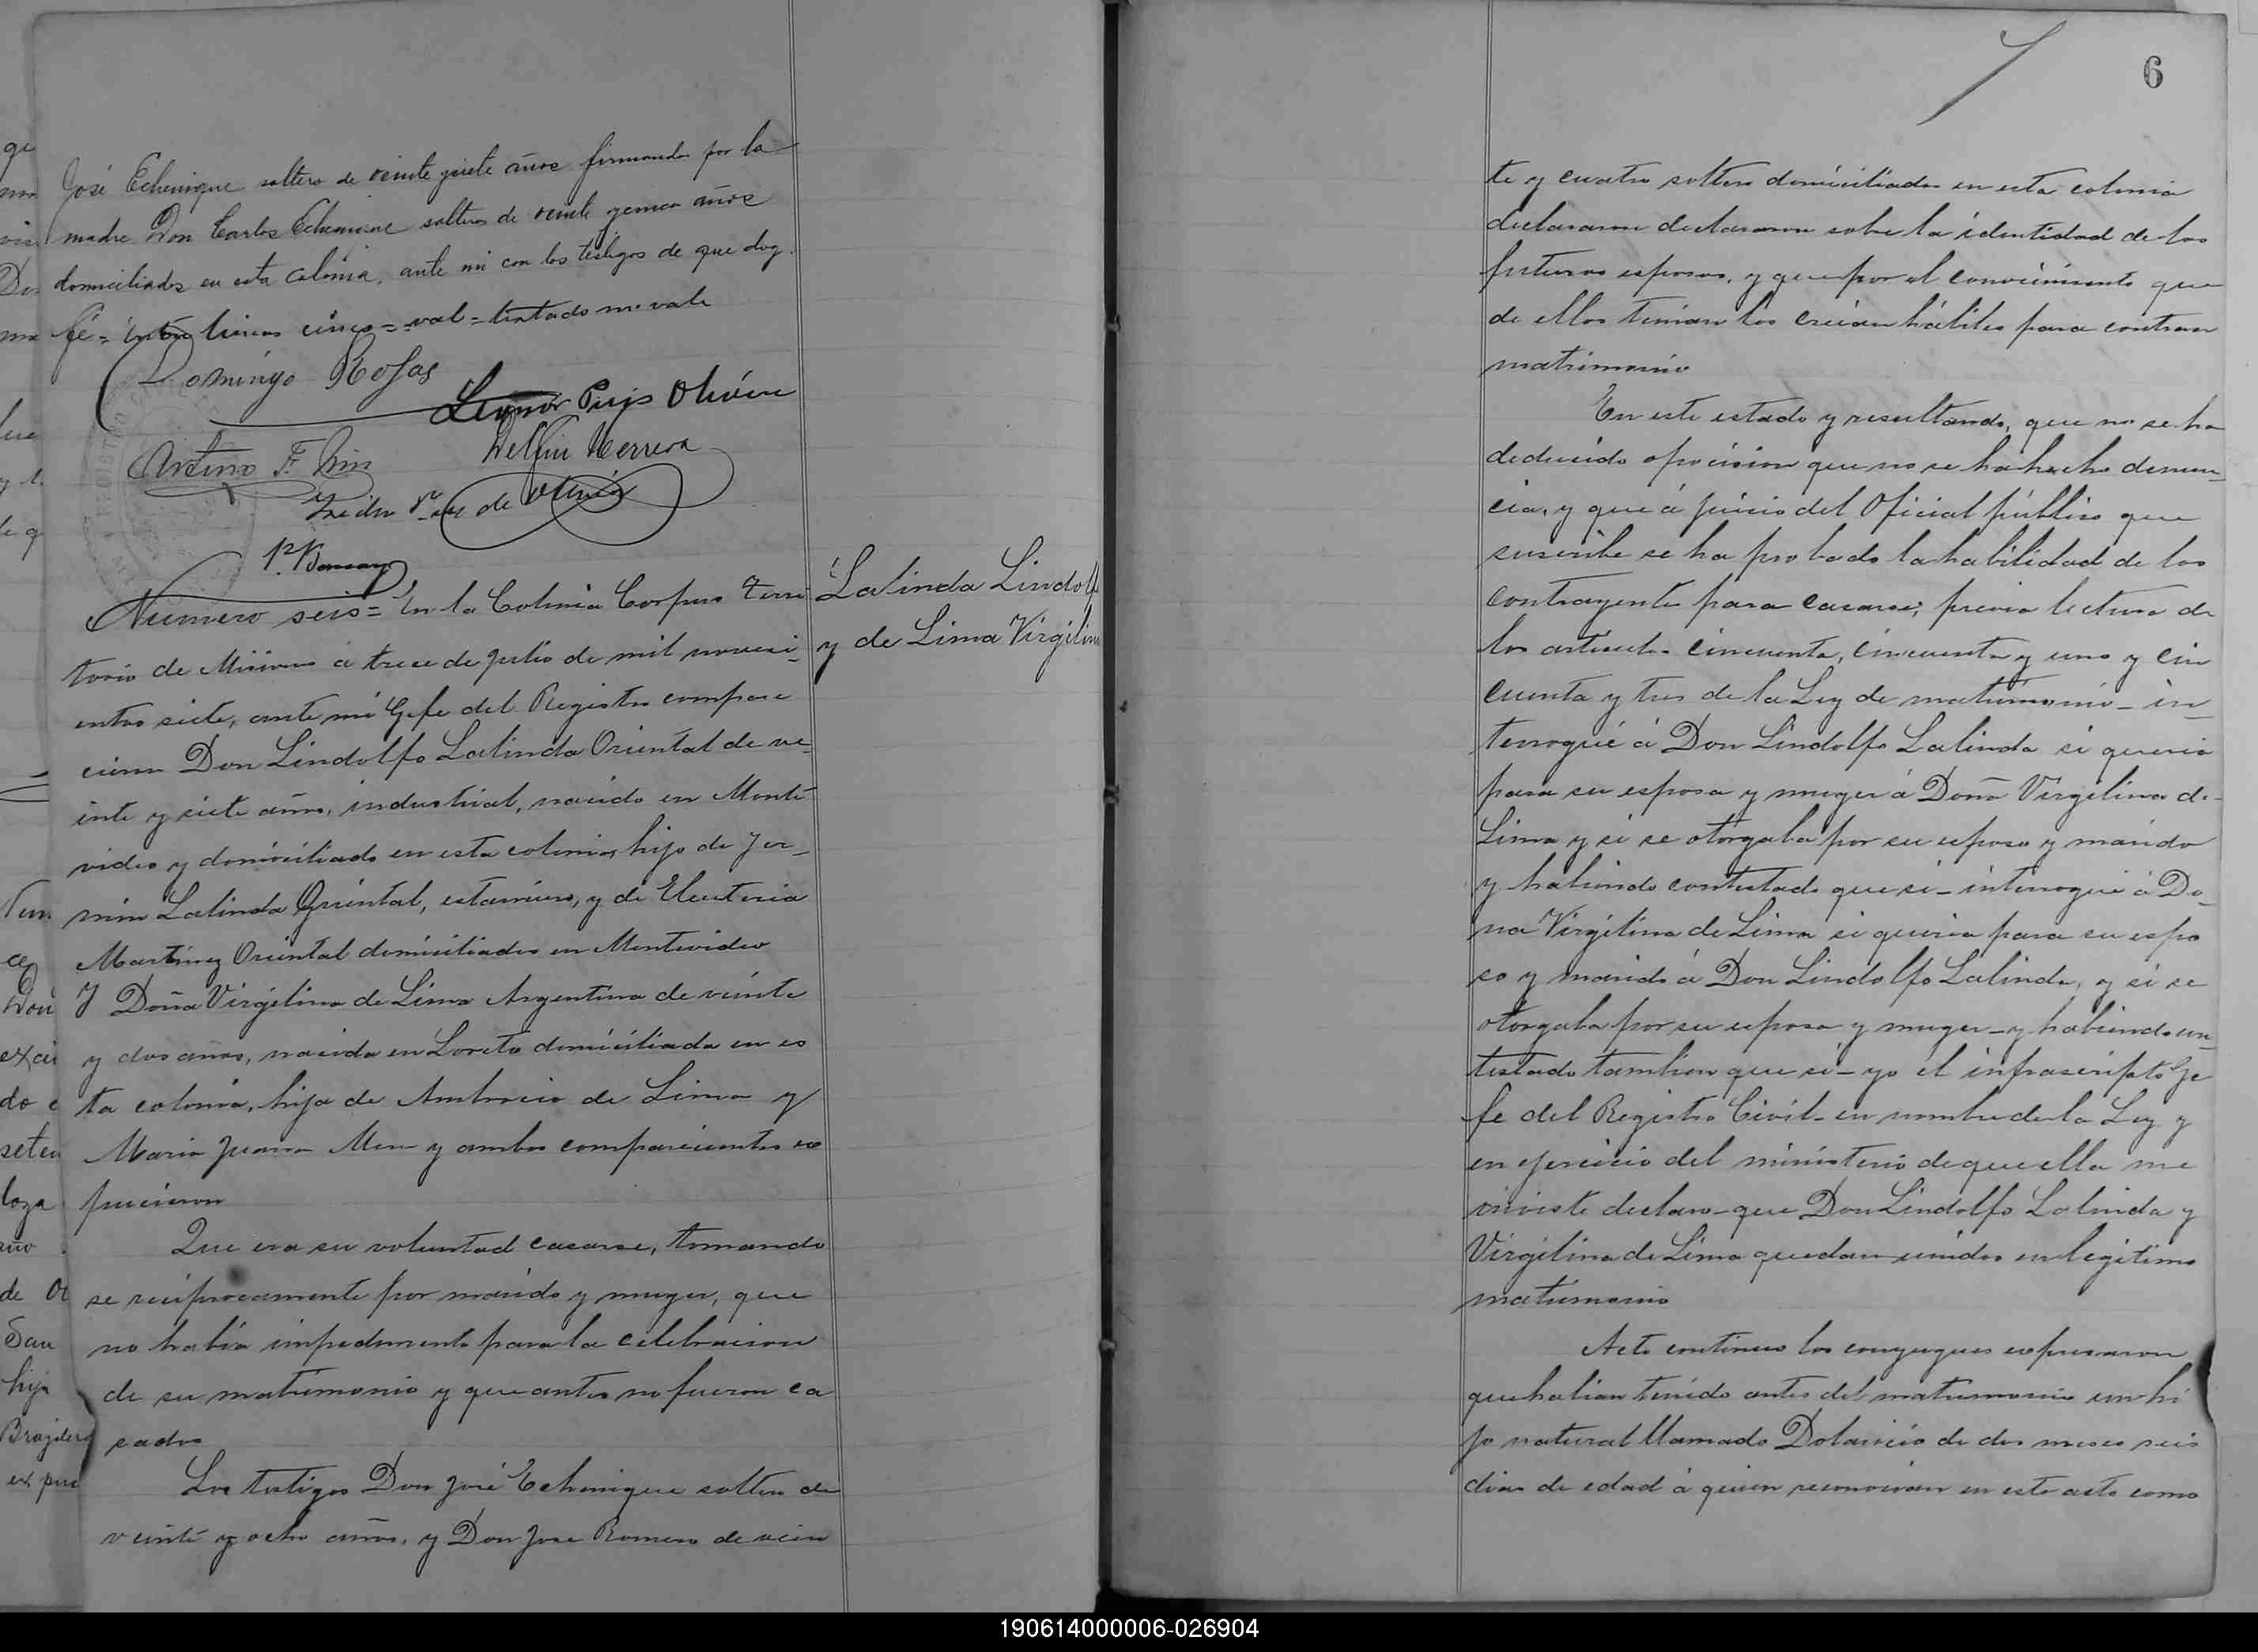 José Echenique soltero de veinte y siete años firmando por la
madre Don Carlos Echenique soltero de veinte y cinco años
domiciliados en esta colonia, ante mi con los testigos de que doy
fé = entre lineas cinco = val = testado no vale
Domingo Rosas
Leonor Puijs Olivera
Arturo F.
Delfin Herrera
de
Numero seis = En la Colonia Corpus Terri
torio de Misiones á trece de Julio de mil noveci-
entos siete, ante mi Gefe del Registro compare
cieron Don Lindolfo Lalinda Oriental de ve-
inte y siete años, industrial, nacido en Monte
video y domiciliado en esta colonia, hijo de Jer-
min Lalinda Oriental, estanciero, y de Eleuteria
Martinez Oriental domiciliados en Montevideo
Y Doña Virgilina de Lima Argentina de veinte
y dos años, nacida en Loreto domiciliada en es
ta colonia, hija de Ambrocio de Lima y
Maria Juana y ambos comparecientes ex
pucieron
Que era su voluntad casarse, tomando
se reciprocamente por marido y muger, que
no habia impedimento para la celebracion
de su matrimonio y que antes no fueron ca
sados
Los testigos Don José Echenique soltero de
veinte y ocho años, y Don Jose Romero de vein
Lalinda Lindolf
y de Lima Virgilina
6
te y cuatro soltero domiciliados en esta colonia
declararon declararon sobre la identidad de los
futuros esposos, y que por el conocimiento que
de ellos tenian los creian hábiles para contraer
matrimonio
En este estado y resultando, que no se ha
deducido oposicion que no se ha hecho denun-
cia, y que á juicio del Oficial público que
suscribe se ha probado la habilidad de los
contrayentes para casarse, previa lectura de
los articulos cincuenta, cincuenta y uno y cin
cuenta y tres de la Ley de matrimonio - in-
terrogué á Don Lindolfo Lalinda si queria
para su esposa y muger á Doña Virgilina de
Lima y si se otorgaba por su esposo y marido
y habiendo contestado que si - interrogué á Do-
ña Virgilina de Lima si queria para su espo
so y marido á Don Lindolfo Lalinda, y si se
otorgaba por su esposa y muger - y habiendo con-
testado tambien que si - yo el infrascripto Ge
fe del Registro Civil - en nombre de la Ley y
en ejercicio del ministerio de que ella me
inviste declaro - que Don Lindolfo Lalinda y
Virgilina de Lima quedan unidos en legitimo
matrimonio
Acto continuo los conyugues expresaron
que habian tenido antes del matrimonio un hi
jo natural llamado Dolancio de dos meses seis
dias de edad á quien reconocian en este acto como
190614000006-026904